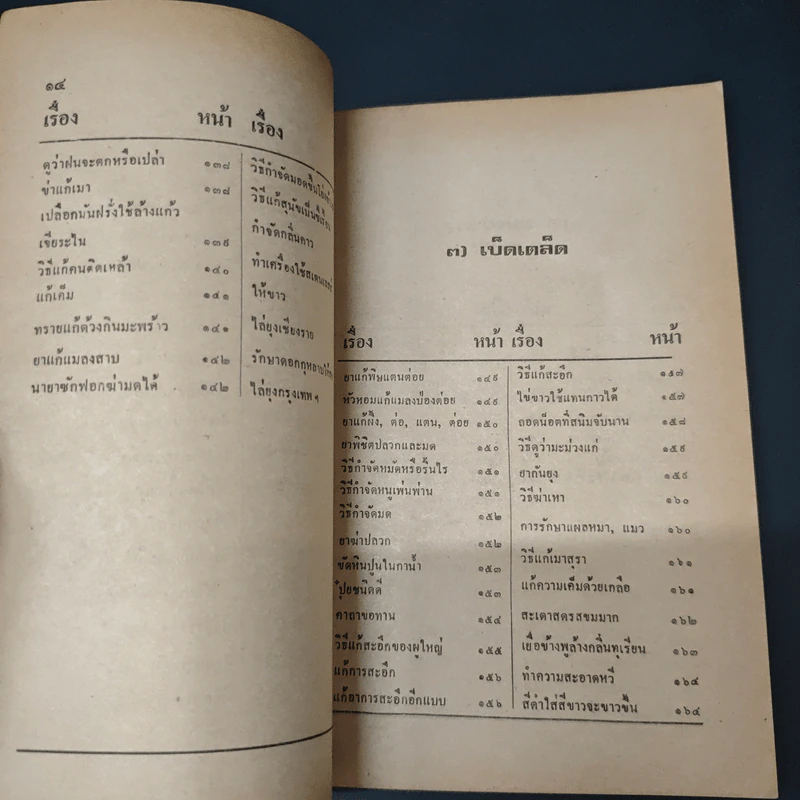 ๑๔
เรื่อง หน้า
ดูว่าฝนจะตกหรือเปล่า ๑๓๘
ข่าแก้เมา ๑๓๘
เปลือกมันฝรั่งใช้ล้างแก้ว
เจียระไน ๑๓๙
วิธีแก้คนติดเหล้า ๑๔๐
แก้เค็ม ๑๔๑
ทรายแก้ด้วงกินมะพร้าว ๑๔๑
ยาแก้แมลงสาบ ๑๔๒
นายาซักฟอกฆ่ามดได้ ๑๔๒
เรื่อง
วิธีกำจัดมอดขึ้น
วิธีแก้สุนัขเป็นขี้เรื้อน
กำจัดกลิ่นคาว
ทำเครื่องใช้สเตนเลส
ให้ขาว
ไล่ยุงเชียงราย
รักษาดอกกุหลาบ
ไล่ยุงกรุงเทพฯ
๓) เบ็ดเตล็ด
เรื่อง หน้า
ยาแก้พิษแตนต่อย ๑๔๙
หัวหอมแก้แมลงป่องต่อย ๑๔๙
ยาแก้ผึ้ง, ต่อ, แตน, ต่อย ๑๕๐
ยาพิชิตปลวกและมด ๑๕๐
วิธีกำจัดหมัดหรือริ้นไร ๑๕๑
วิธีกำจัดหนูเพ่นพ่าน ๑๕๑
วิธีกำจัดมด ๑๕๒
ยาฆ่าปลวก ๑๕๒
ขัดหินปูนในกาน้ำ ๑๕๓
ปุ๋ยชนิดดี ๑๕๓
คาถาขอทาน ๑๕๔
วิธีแก้สะอึกของผู้ใหญ่ ๑๕๕
แก้การสะอึก ๑๕๖
แก้อาการสะอึกอีกแบบ ๑๕๖
เรื่อง หน้า
วิธีแก้สะอึก ๑๕๗
ไข่ขาวใช้แทนกาวได้ ๑๕๗
ถอดน็อตที่สนิมจับนาน ๑๕๘
วิธีดูว่ามะม่วงแก่ ๑๕๙
ยากันยุง ๑๕๙
วิธีฆ่าเหา ๑๖๐
การรักษาแผลหมา, แมว ๑๖๐
วิธีแก้เมาสุรา ๑๖๑
แก้ความเค็มด้วยเกลือ ๑๖๑
สะเดาสดรสขมมาก ๑๖๒
เยื่อข้างพูล้างกลิ่นทุเรียน ๑๖๓
ทำความสะอาดหวี ๑๖๔
สีดำใส่สีขาวจะขาวขึ้น ๑๖๔